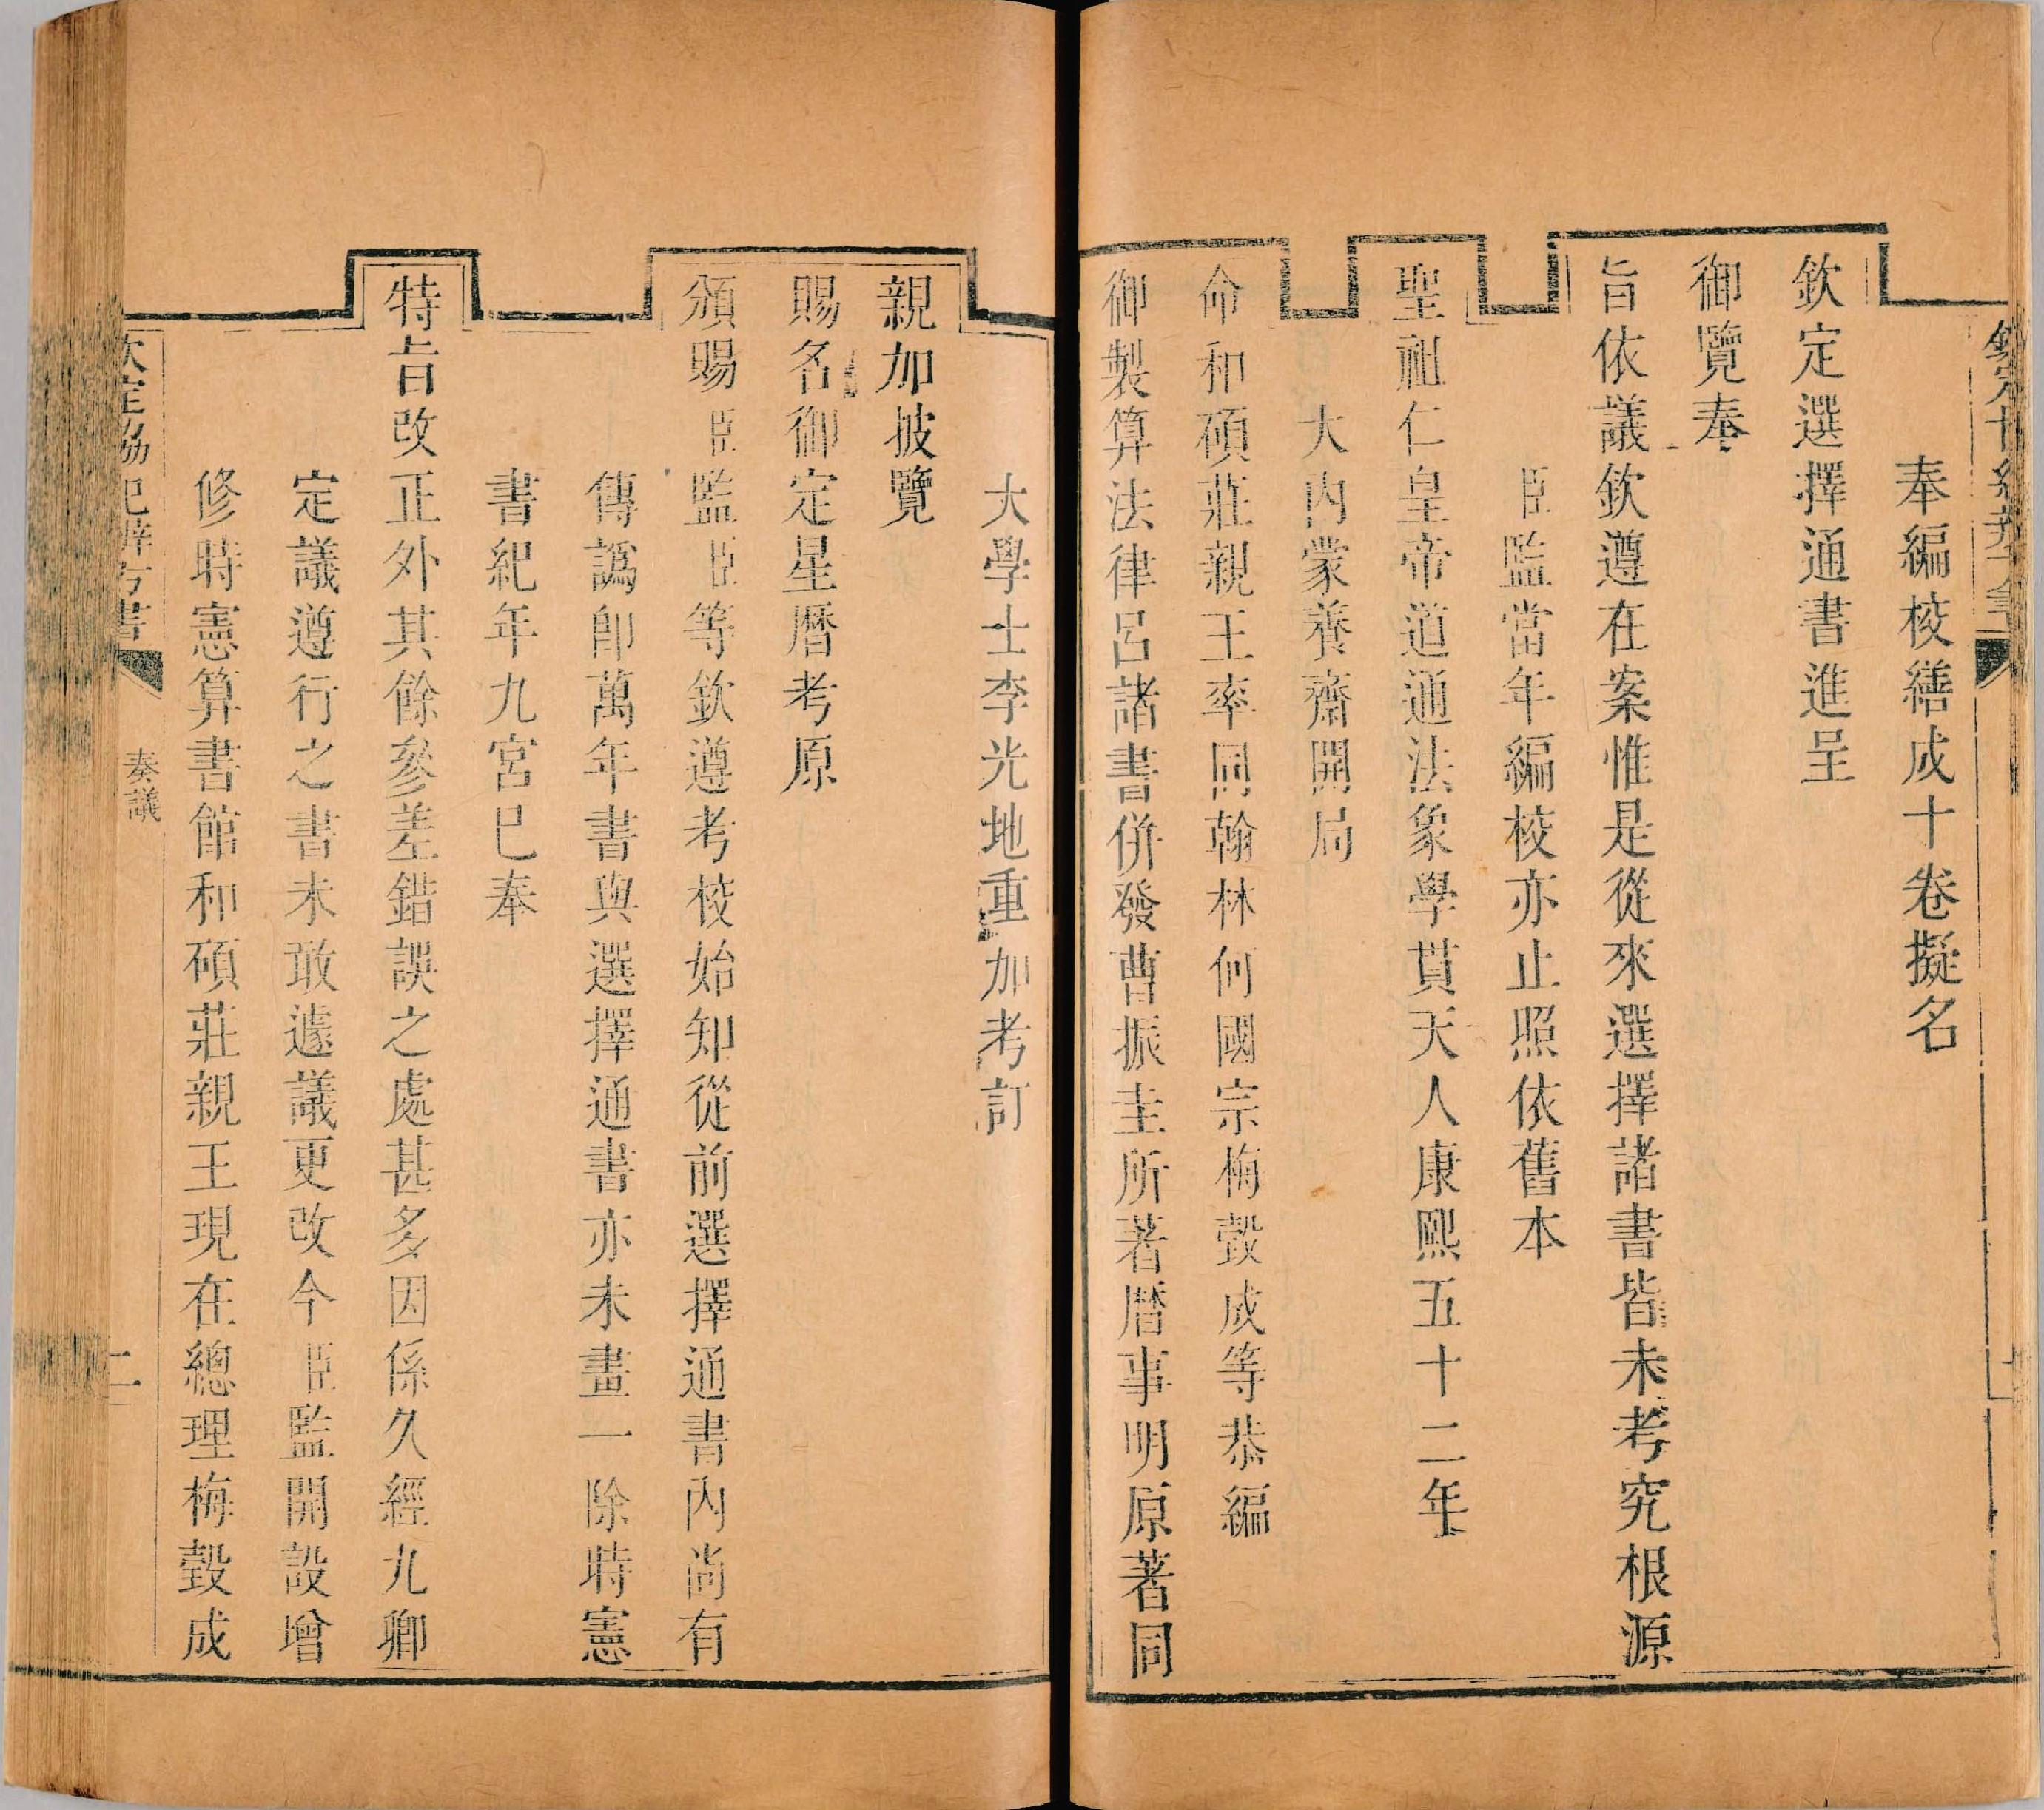 奉編校繕成十卷擬名
欽定選擇通書進呈
御覽奉
旨依議欽遵在案惟是從來選擇諸書皆未考究根源
臣監當年編校亦止照依舊本
聖祖仁皇帝道通法象學貫天人康熙五十二年
大內蒙養齋開局
命和碩莊親王率同翰林何國宗梅瑴成等恭編
御製算法律呂諸書併發曹振圭所著曆事明原著同
大學士李光地重加考訂
親加披覽
賜名御定星曆考原
頒賜臣監臣等欽遵考校始知從前選擇通書內尚有
傳譌卽萬年書與選擇通書亦未畫一除時憲
書紀年九宮已奉
特旨改正外其餘參差錯誤之處甚多因係久經九卿
定議遵行之書未敢遽議更改今臣監開設增
修時憲算書館和碩莊親王現在總理梅瑴成
欽定協紀辨方書
奏議
二